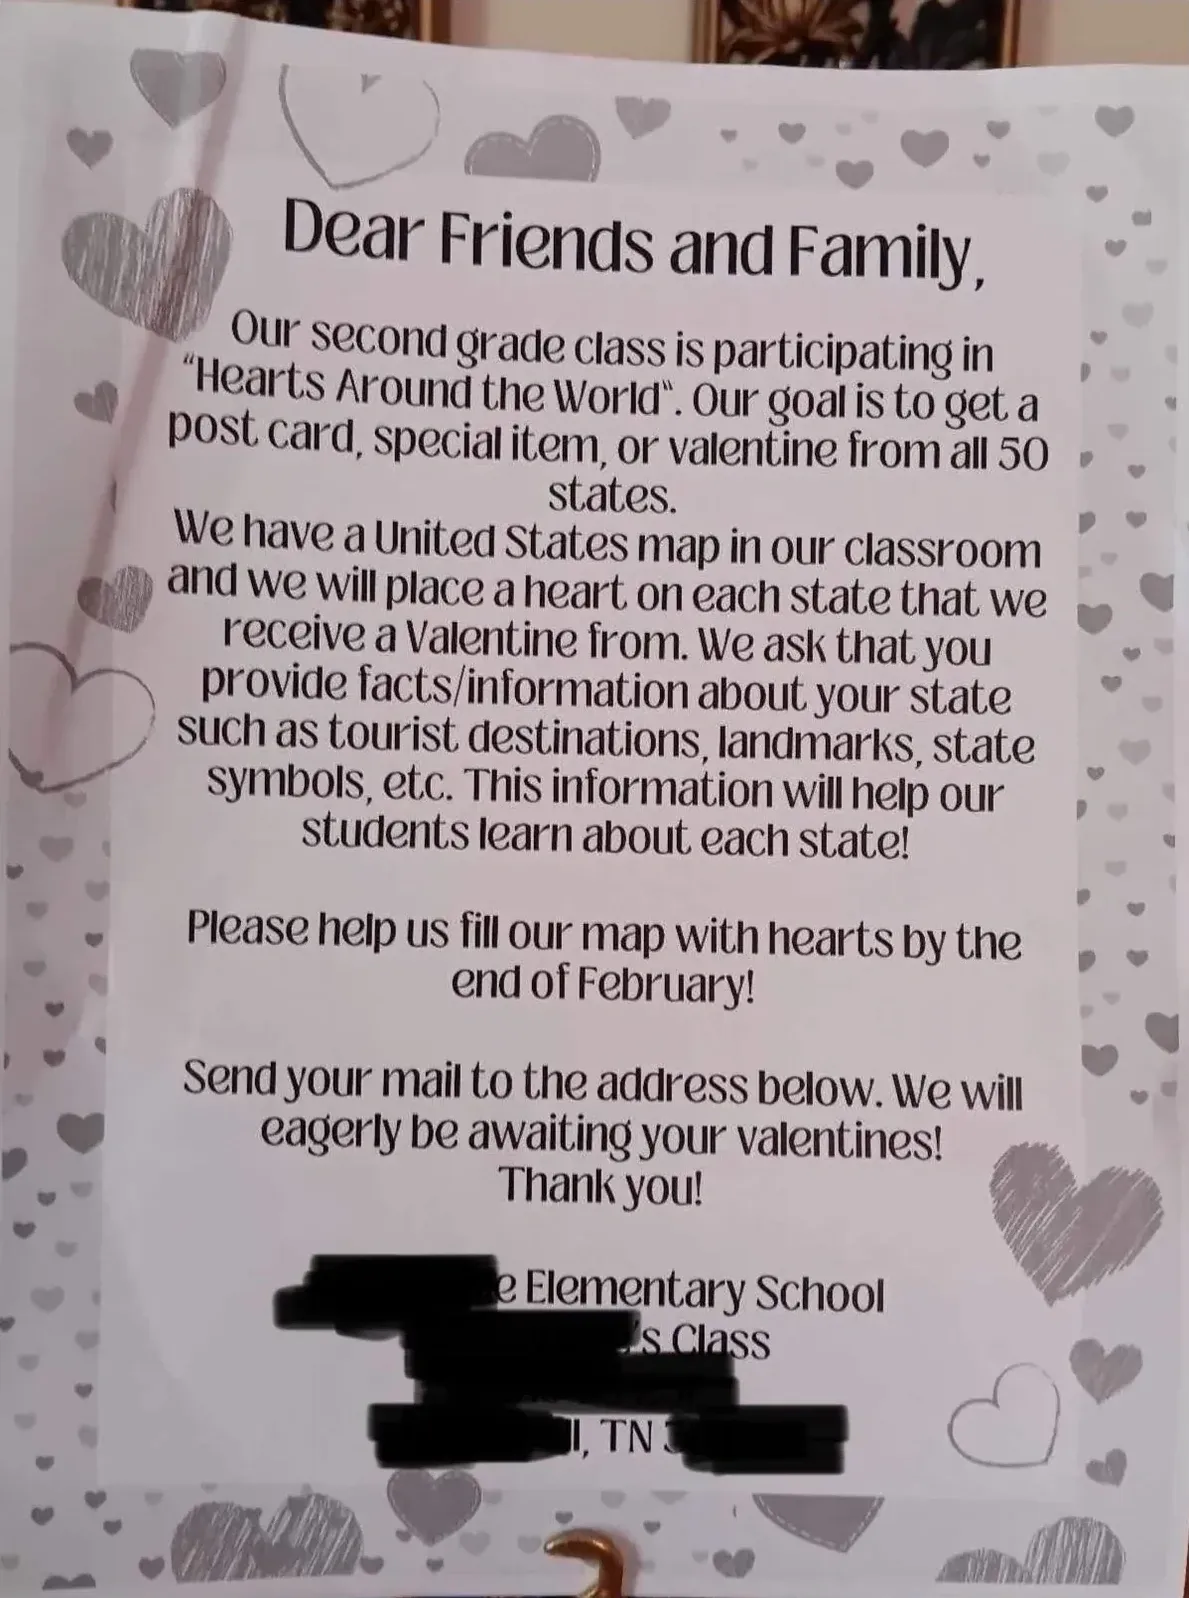 Dear Friends and Family,
Our second grade class is participating in
"Hearts Around the World". Our goal is to get a
post card, special item, or valentine from all 50
states.
We have a United States map in our classroom
and we will place a heart on each state that we
receive a Valentine from. We ask that you
provide facts/information about your state
such as tourist destinations, landmarks, state
symbols, etc. This information will help our
students learn about each state!
Please help us fill our map with hearts by the
end of February!
Send your mail to the address below. We will
eagerly be awaiting your valentines!
Thank you!
Elementary School
Class
TN